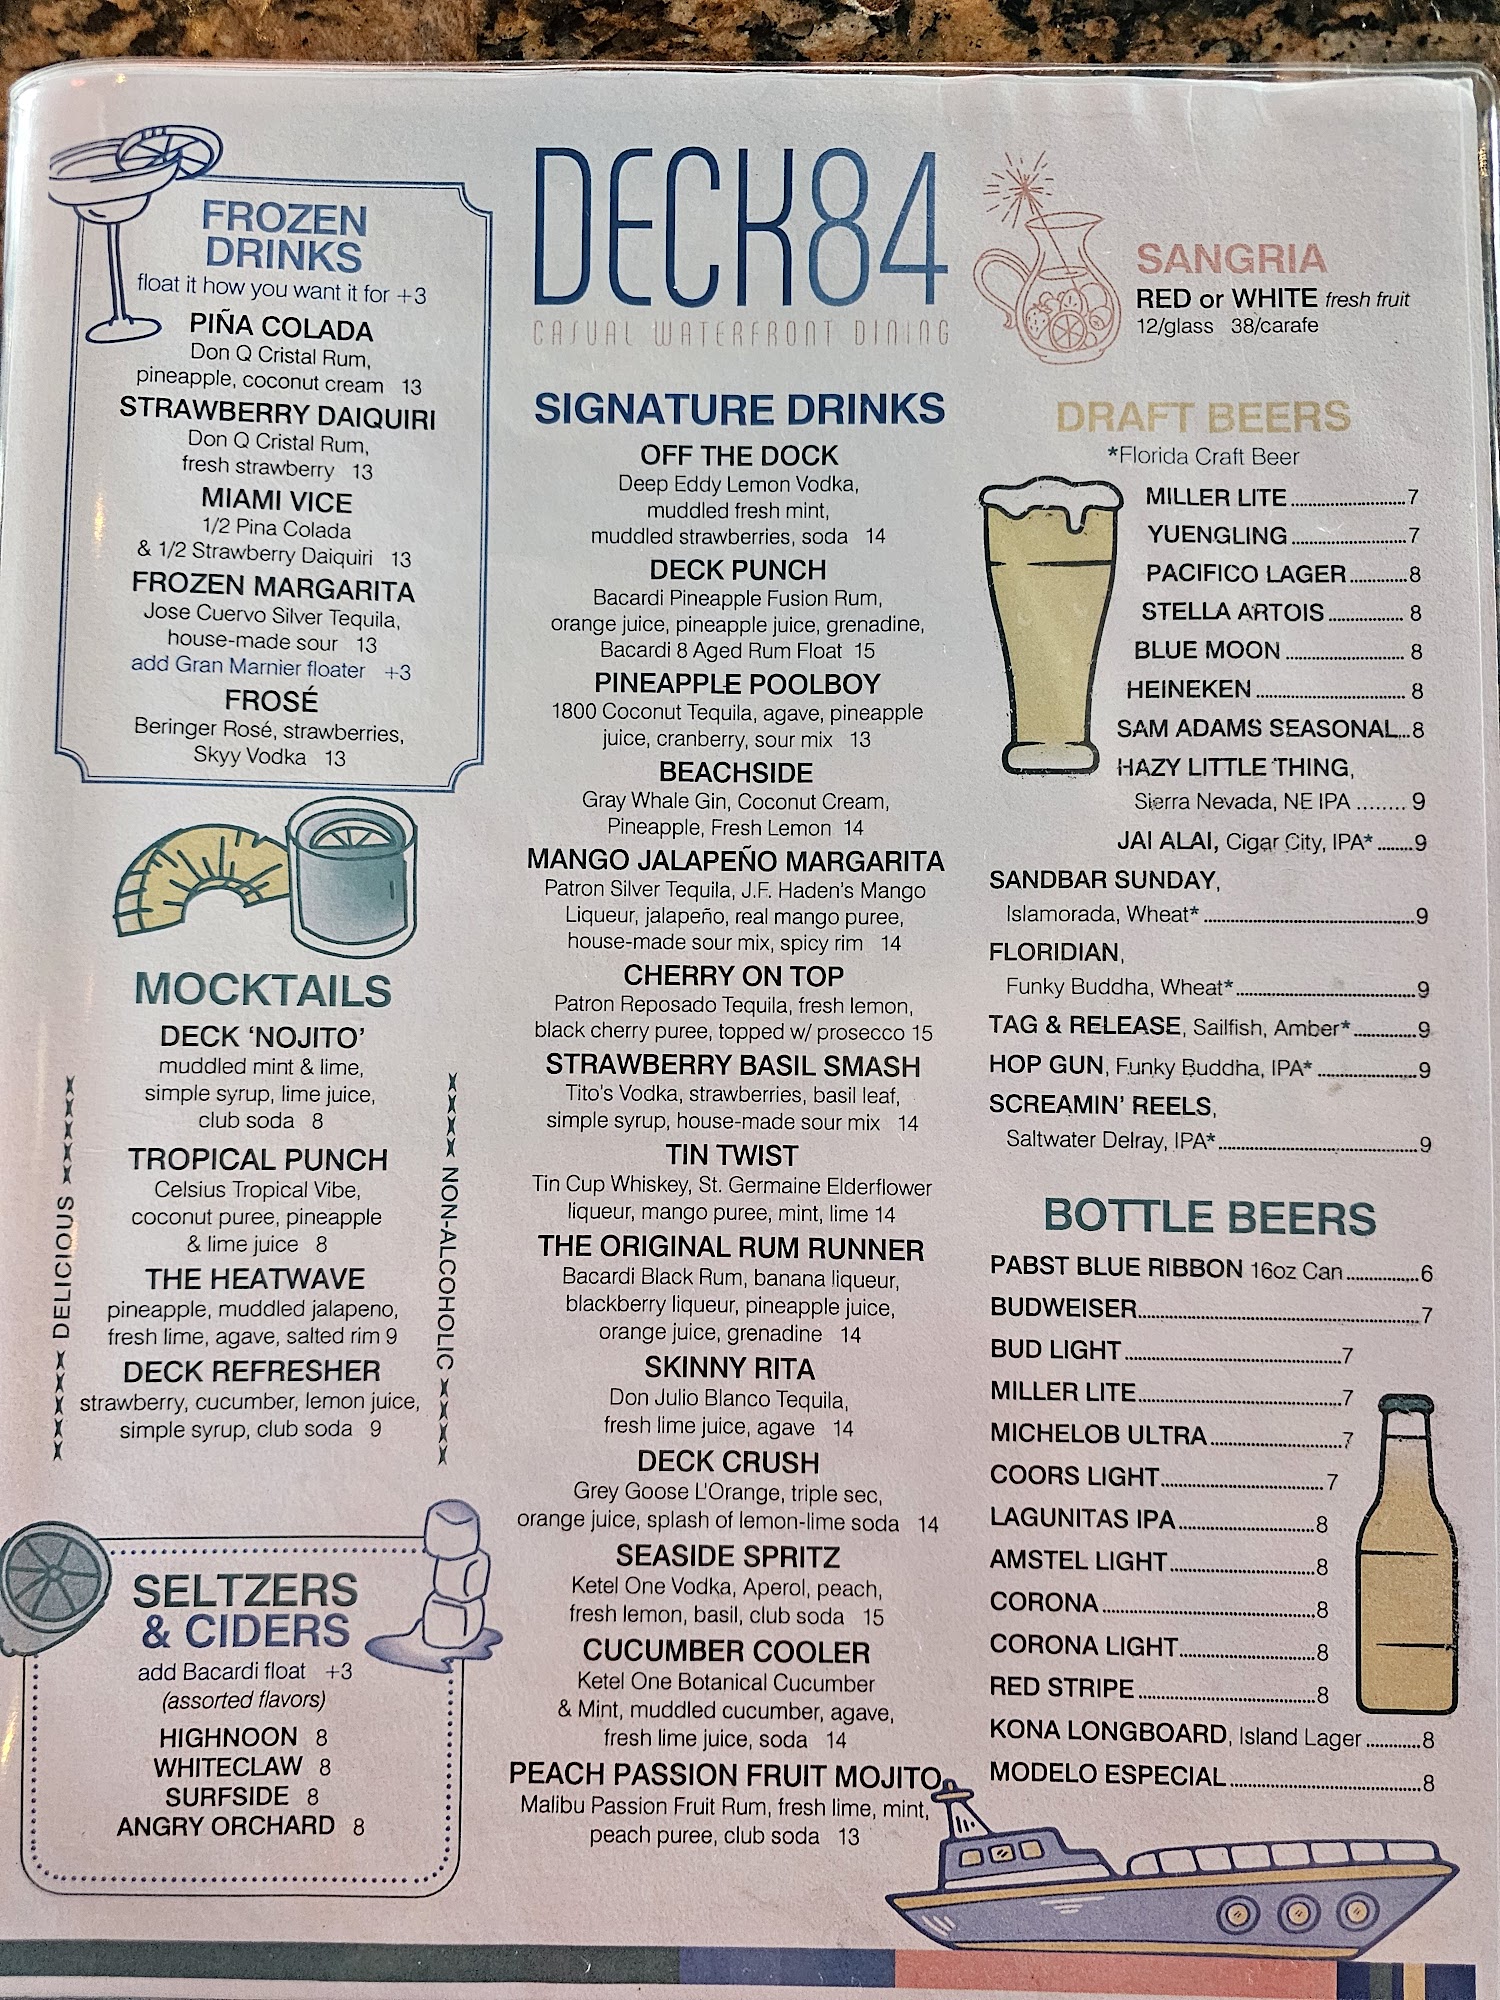 FROZEN
DRINKS
float it how you want it for +3
PIÑA COLADA
Don Q Cristal Rum,
pineapple, coconut cream 13
STRAWBERRY DAIQUIRI
Don Q Cristal Rum,
fresh strawberry 13
MIAMI VICE
1/2 Pina Colada
& 1/2 Strawberry Daiquiri 13
FROZEN MARGARITA
Jose Cuervo Silver Tequila,
house-made sour 13
add Gran Marnier floater +3
FROSÉ
Beringer Rosé, strawberries,
Skyy Vodka 13
MOCKTAILS
DECK 'NOJITO'
muddled mint & lime,
simple syrup, lime juice,
club soda 8
TROPICAL PUNCH
Celsius Tropical Vibe,
coconut puree, pineapple
& lime juice 8
THE HEATWAVE
pineapple, muddled jalapeno,
fresh lime, agave, salted rim 9
DECK REFRESHER
strawberry, cucumber, lemon juice,
simple syrup, club soda 9
DELICIOUS
NON-ALCOHOLIC
SELTZERS
& CIDERS
add Bacardi float +3
(assorted flavors)
HIGHNOON 8
WHITECLAW 8
SURFSIDE 8
ANGRY ORCHARD 8
DECK84
CASUAL WATERFRONT DINING
SIGNATURE DRINKS
OFF THE DOCK
Deep Eddy Lemon Vodka,
muddled fresh mint,
muddled strawberries, soda 14
DECK PUNCH
Bacardi Pineapple Fusion Rum,
orange juice, pineapple juice, grenadine,
Bacardi 8 Aged Rum Float 15
PINEAPPLE POOLBOY
1800 Coconut Tequila, agave, pineapple
juice, cranberry, sour mix 13
BEACHSIDE
Gray Whale Gin, Coconut Cream,
Pineapple, Fresh Lemon 14
MANGO JALAPEÑO MARGARITA
Patron Silver Tequila, J.F. Haden's Mango
Liqueur, jalapeño, real mango puree,
house-made sour mix, spicy rim 14
CHERRY ON TOP
Patron Reposado Tequila, fresh lemon,
black cherry puree, topped w/ prosecco 15
STRAWBERRY BASIL SMASH
Tito's Vodka, strawberries, basil leaf,
simple syrup, house-made sour mix 14
TIN TWIST
Tin Cup Whiskey, St. Germaine Elderflower
liqueur, mango puree, mint, lime 14
THE ORIGINAL RUM RUNNER
Bacardi Black Rum, banana liqueur,
blackberry liqueur, pineapple juice,
orange juice, grenadine 14
SKINNY RITA
Don Julio Blanco Tequila,
fresh lime juice, agave 14
DECK CRUSH
Grey Goose L'Orange, triple sec,
orange juice, splash of lemon-lime soda 14
SEASIDE SPRITZ
Ketel One Vodka, Aperol, peach,
fresh lemon, basil, club soda 15
CUCUMBER COOLER
Ketel One Botanical Cucumber
& Mint, muddled cucumber, agave,
fresh lime juice, soda 14
PEACH PASSION FRUIT MOJITO
Malibu Passion Fruit Rum, fresh lime, mint,
peach puree, club soda 13
SANGRIA
RED or WHITE fresh fruit
12/glass 38/carafe
DRAFT BEERS
*Florida Craft Beer
MILLER LITE 7
YUENGLING 7
PACIFICO LAGER 8
STELLA ARTOIS 8
BLUE MOON 8
HEINEKEN 8
SAM ADAMS SEASONAL 8
HAZY LITTLE THING,
Sierra Nevada, NE IPA 9
JAI ALAI, Cigar City, IPA* 9
SANDBAR SUNDAY,
Islamorada, Wheat* 9
FLORIDIAN,
Funky Buddha, Wheat* 9
TAG & RELEASE, Sailfish, Amber* 9
HOP GUN, Funky Buddha, IPA* 9
SCREAMIN' REELS,
Saltwater Delray, IPA* 9
BOTTLE BEERS
PABST BLUE RIBBON 16oz Can 6
BUDWEISER 7
BUD LIGHT 7
MILLER LITE 7
MICHELOB ULTRA 7
COORS LIGHT 7
LAGUNITAS IPA 8
AMSTEL LIGHT 8
CORONA 8
CORONA LIGHT 8
RED STRIPE 8
KONA LONGBOARD, Island Lager 8
MODELO ESPECIAL 8